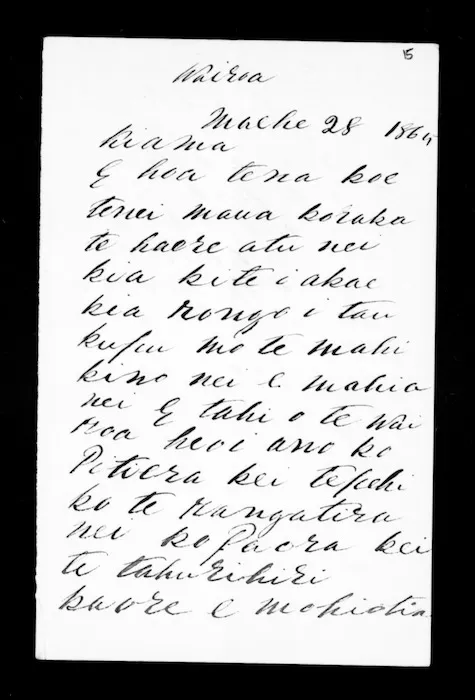 15
Wairoa
Maehe 28 1865
Kia ma
E hoa tena koe
tenei maua koraka
te haere atu nei
kia kite i akoe
kia rongo i tau
kupu mo te mahi
kino nei e mahia
nei E tahi o te Wai
roa heoi ano ko
Pitiera kei tepehi
ko te rangatira
nei ko Paora kei
te tahurihuri
kaore e mohiotia